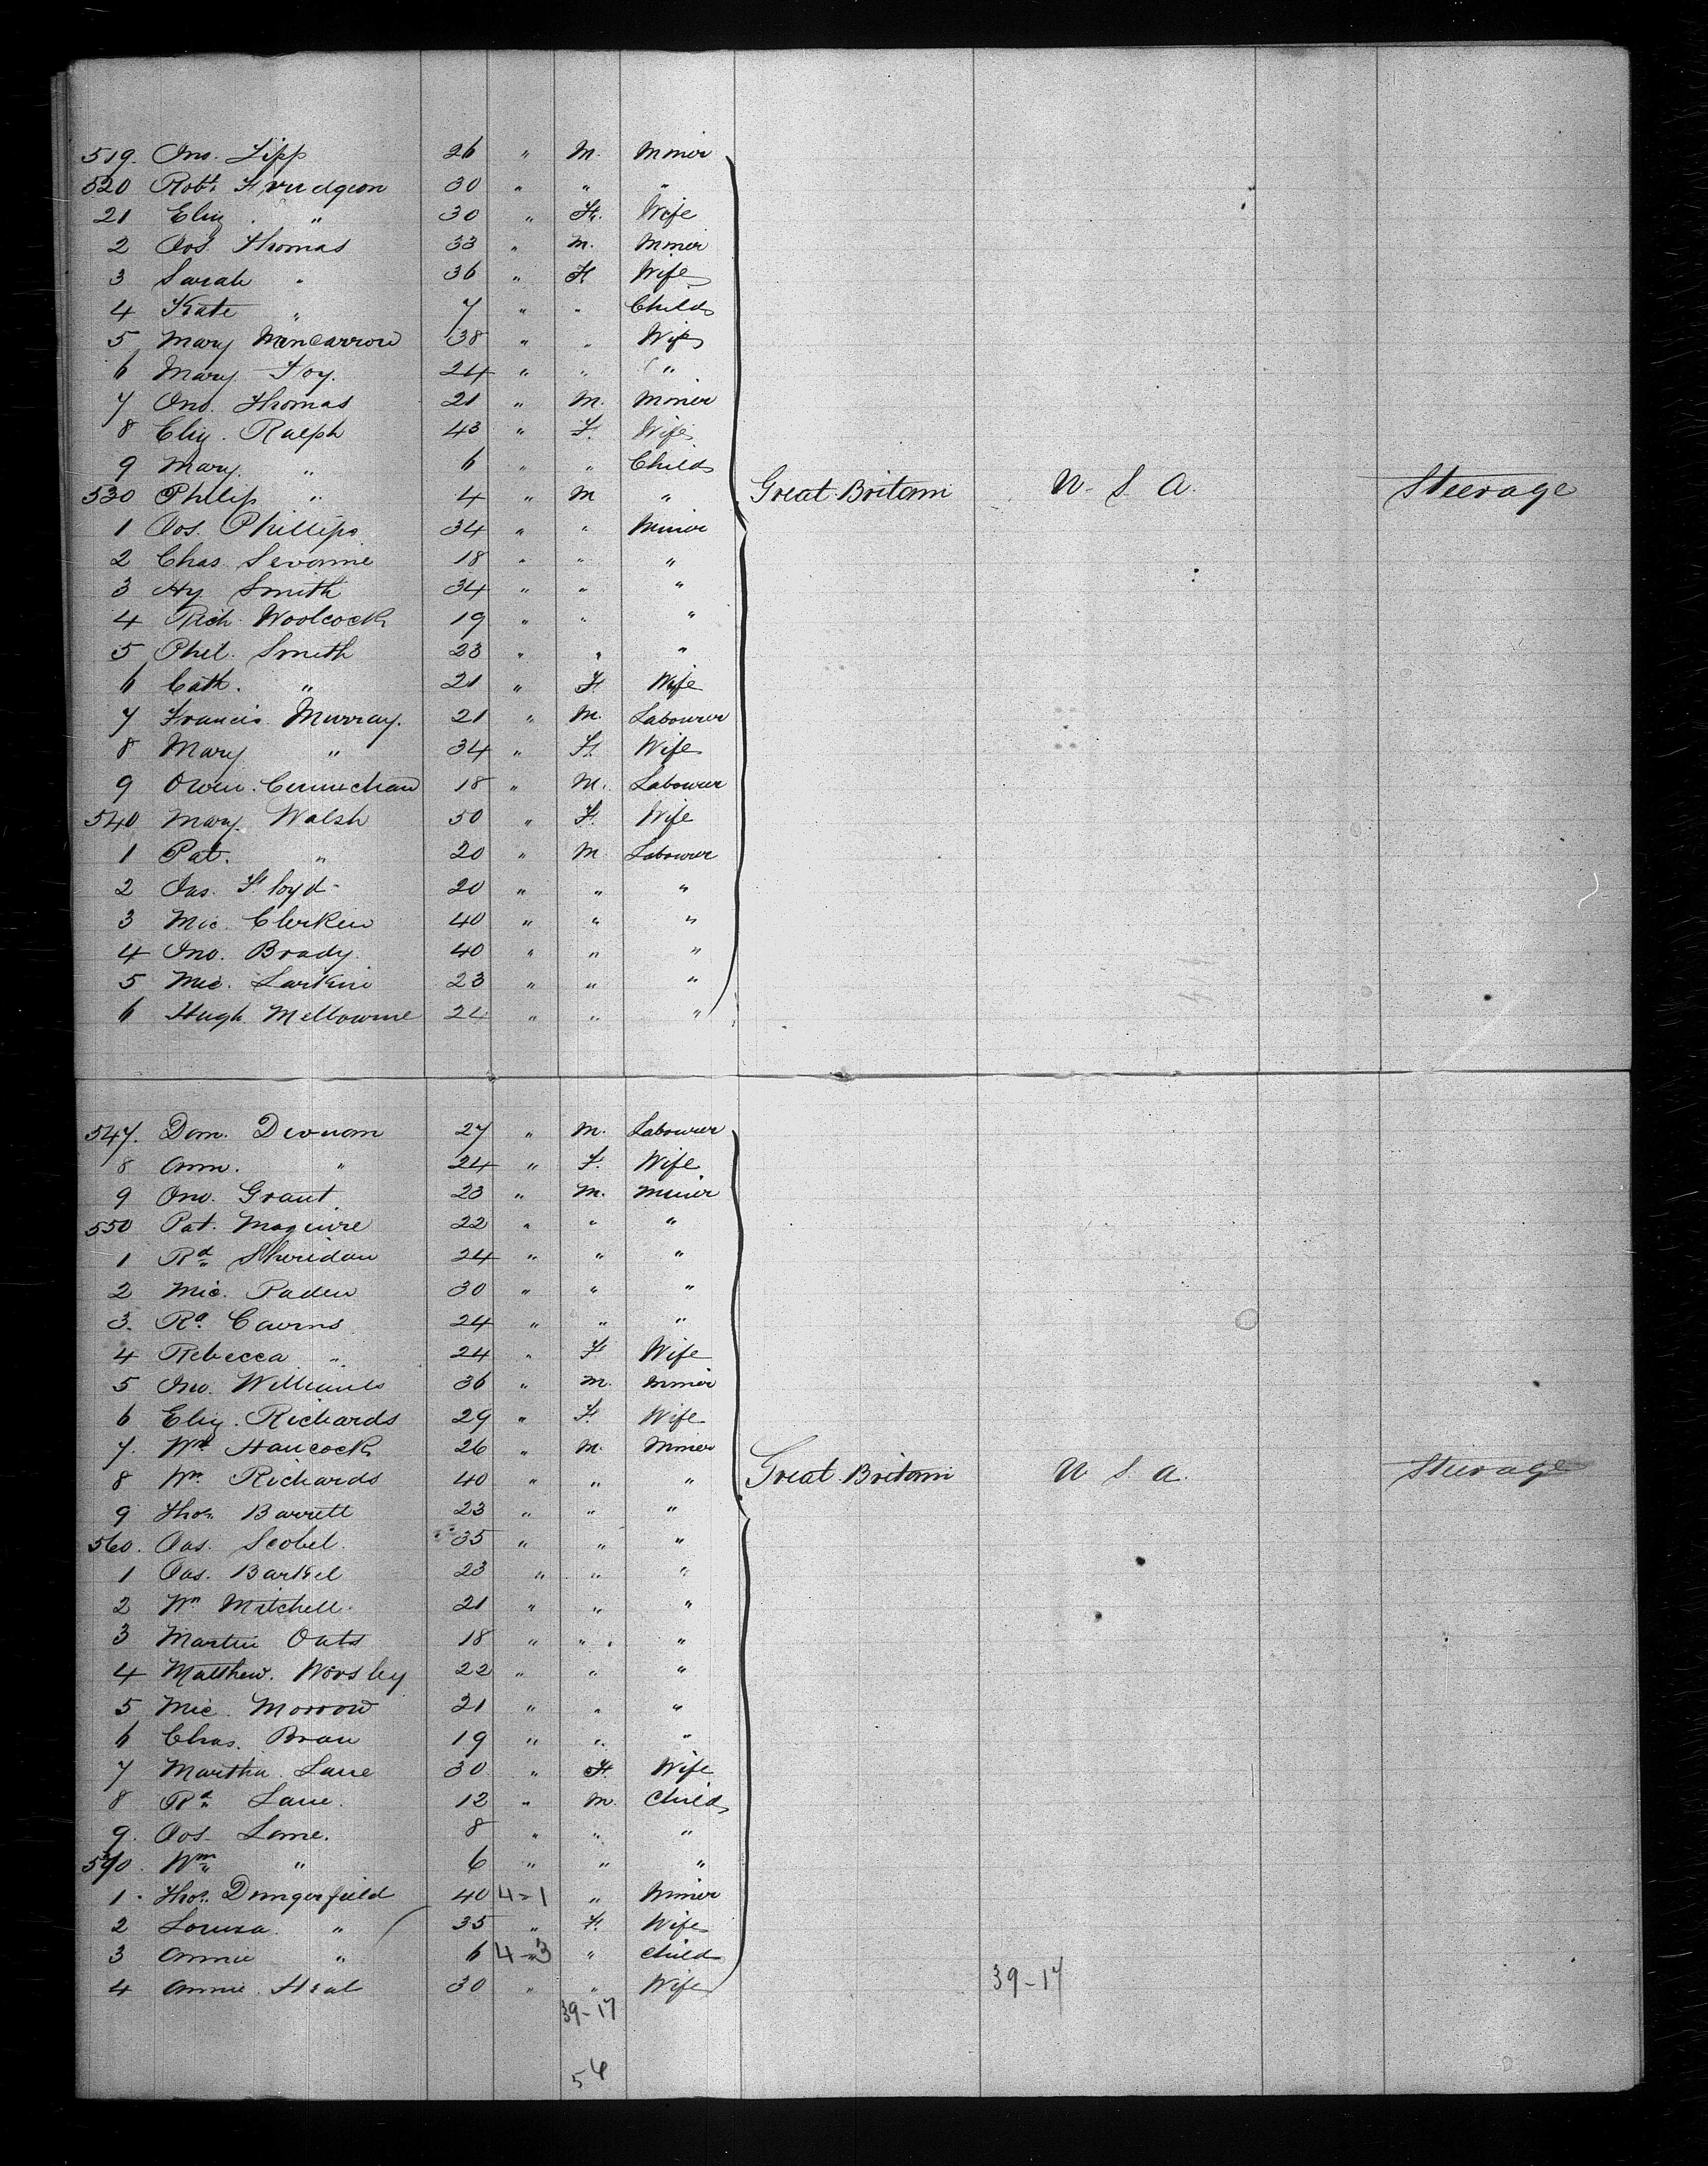 519. Jno. Lipp 26 " M. Miner
520 Robt. Trudgeon 30 " " "
21 Eliz. " 30 " F. Wife
2 Jos. Thomas 33 " M. Miner
3 Sarah " 36 " F Wife
4 Kate " 7 " " Child
5 Mary Mencarrow 38 " " Wife
6 Mary Foy. 24 " " "
7 Jno. Thomas 21 " M. Miner
8 Eliz. Ralph 43 " F. Wife
9 Mary. " 6 " " Child
530 Philip " 4 " M " Great Britain U. S. A. Steerage
1 Jos. Phillips 34 " " Miner
2 Chas. 18 " " "
3 Hy. Smith 34 " " "
4 Rich. Woolcock 19 " " "
5 Phil. Smith 23 " " "
6 Cath. " 21 " F Wife
7 Francis Murray. 21 " M. Labourer
8 Mary " 34 " F. Wife
9 Owen 18 " M. Labourer
540 Mary Walsh 50 " F. Wife
1 Pat. " 20 " M Labourer
2 Jas. Floyd 20 " " "
3 Mic. Clerkin 40 " " "
4 Jno. Brady. 40 " " "
5 Mic. Larkin 23 " " "
6 Hugh " " "
547. Dom. 27 " M. Labourer
8 Ann. " 24 " F. Wife
9 Jno. Grant 23 " M. Miner
550 Pat. Maguire 22 " " "
1 Rd. Sheridan 24 " " "
2 Mic. Paden 30 " " "
3. Rd. Cairns 24 " " "
4 Rebecca " 24 " F Wife
5 Jno. Williams 36 " M. Miner
6 Eliz. Richards 29 " F. Wife
7. Wm Hancock 26 " M. Miner
8 Wm. Richards 40 " " " Great Britain U S A. Steerage
9 Thos. Barrett 23 " " "
560. Jas. Scobel. 35 " " "
1 Jas. Barkel 23 " " "
2 Wm Mitchell. 21 " " "
3 Martin Oats 18 " " "
4 Matthew. Worsley 22 " " "
5 Mic. Morrow 21 " " "
6 Chas. Bray 19 " " "
7 Martha Lane 30 " F. Wife
8 Rd. Lane. 12 " M. Child
9. Jos. Lane. 8 " " "
570. Wm " 6 " " "
1. Thos. Dungerfield 40 4-1 " Miner
2 Louisa " 35 " F. Wife
3 Annie " 6 4-3 " Child
4 Annie Heal 30 " " Wife
39-17 39-17
56